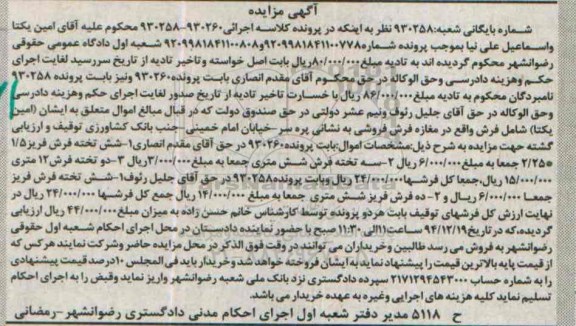 آگهی مزایده
شماره بایگانی شعبه:۹۳۰۲۵۸ نظر به اینکه در پرونده کلاسه اجرائی۹۳۰۲۶۰-۹۳۰۲۵۸ محکوم علیه آقای امین یکتا
واسماعیل علی نیا بموجب پرونده شماره۹۲۰۹۹۸۱۸۴۱۱۰۰۷۷۸و۹۲۰۹۹۸۱۸۴۱۱۰۰۸۰۸ شعبه اول دادگاه عمومی حقوقی
رضوانشهر محکوم گردیده اند به تادیه مبلغ۸۰/۰۰۰/۰۰۰ریال بابت اصل خواسته وتاخیر تادیه از تاریخ سررسید لغایت اجرای
حکم وهزینه دادرسی وحق الوکاله در حق محکوم آقای مقدم انصاری بابت پرونده۹۳۰۲۶۰ ونیز بابت پرونده ۹۳۰۲۵۸
نامبردگان محکوم به تادیه مبلغ۸۶/۰۰۰/۰۰۰ ریال با خسارت تاخیر تادیه از تاریخ صدور لغایت اجرای حکم وهزینه دادرسی
وحق الوکاله در حق آقای جلیل رئوف ونیم عشر دولتی در حق صندوق دولت که در قبال مبالغ اموال متعلق به ایشان (امین
یکتا) شامل فرش واقع در مغازه فرش فروشی به نشانی پره سر-خیابان امام خمینی-جنب بانک کشاورزی توقیف و ارزیابی
گشته جهت مزایده به شرح ذیل:مشخصات اموال:بابت پرونده۹۳۰۲۶۰ در حق آقای مقدم انصاری۱-شش تخته فرش فریز ۱/۵
*۲/۲۵ جمعا به مبلغ۶/۰۰۰/۰۰۰ ریال ۲-سه تخته فرش شش متری جمعا به مبلغ۳/۰۰۰/۰۰۰ریال ۳-دو تخته فرش۱۲ متری
۱۵/۰۰۰/۰۰۰ ریال،جمعا کل فرشها۲۴/۰۰۰/۰۰۰ ریال وبابت پرونده۹۳۰۲۵۸ در حق آقای جلیل رئوف۱-شش تخته فرش فریز
جمعا ۶/۰۰۰/۰۰۰ ریال و ۲-ده فرش فریز شش متری جمعا به مبلغ۱۴/۰۰۰/۰۰۰ ریال جمع کل فرشها ۲۴/۰۰۰/۰۰۰ ریال در
نهایت ارزش کل فرشهای توقیف بابت هر دو پرونده توسط کارشناس خانم حسن زاده به میزان مبلغ۴۴/۰۰۰/۰۰۰ ریال ارزیابی
گردیده،که در تاریخ۹۴/۱۲/۱۹ ساعت۱۱الی ۱۱:۳۰ صبح با حضور نماینده دادستان در محل اجرای احکام شعبه اول حقوقی
رضوانشهر به فروش می رسد طالبین وخریداران می توانند در وقت فوق الذکر در محل مزایده حاضر وشرکت نمایند هر کس که
از قیمت پایه بالاترین قیمت را پیشنهاد نماید به ایشان فروخته خواهد شدوخریدار باید فی المجلس ۱۰درصد قیمت پیشنهادی
را به شماره حساب ۲۱۷۱۲۹۴۵۴۳۰۰۰ سپرده دادگستری نزد بانک ملی شعبه رضوانشهر واریز نماید وقبض را به اجرای احکام
تسلیم نماید کلیه هزینه های اجرایی وغیره به عهده خریدار می باشد.
ح ۵۱۱۸ مدیر دفتر شعبه اول اجرای احکام مدنی دادگستری رضوانشهر-رمضانی